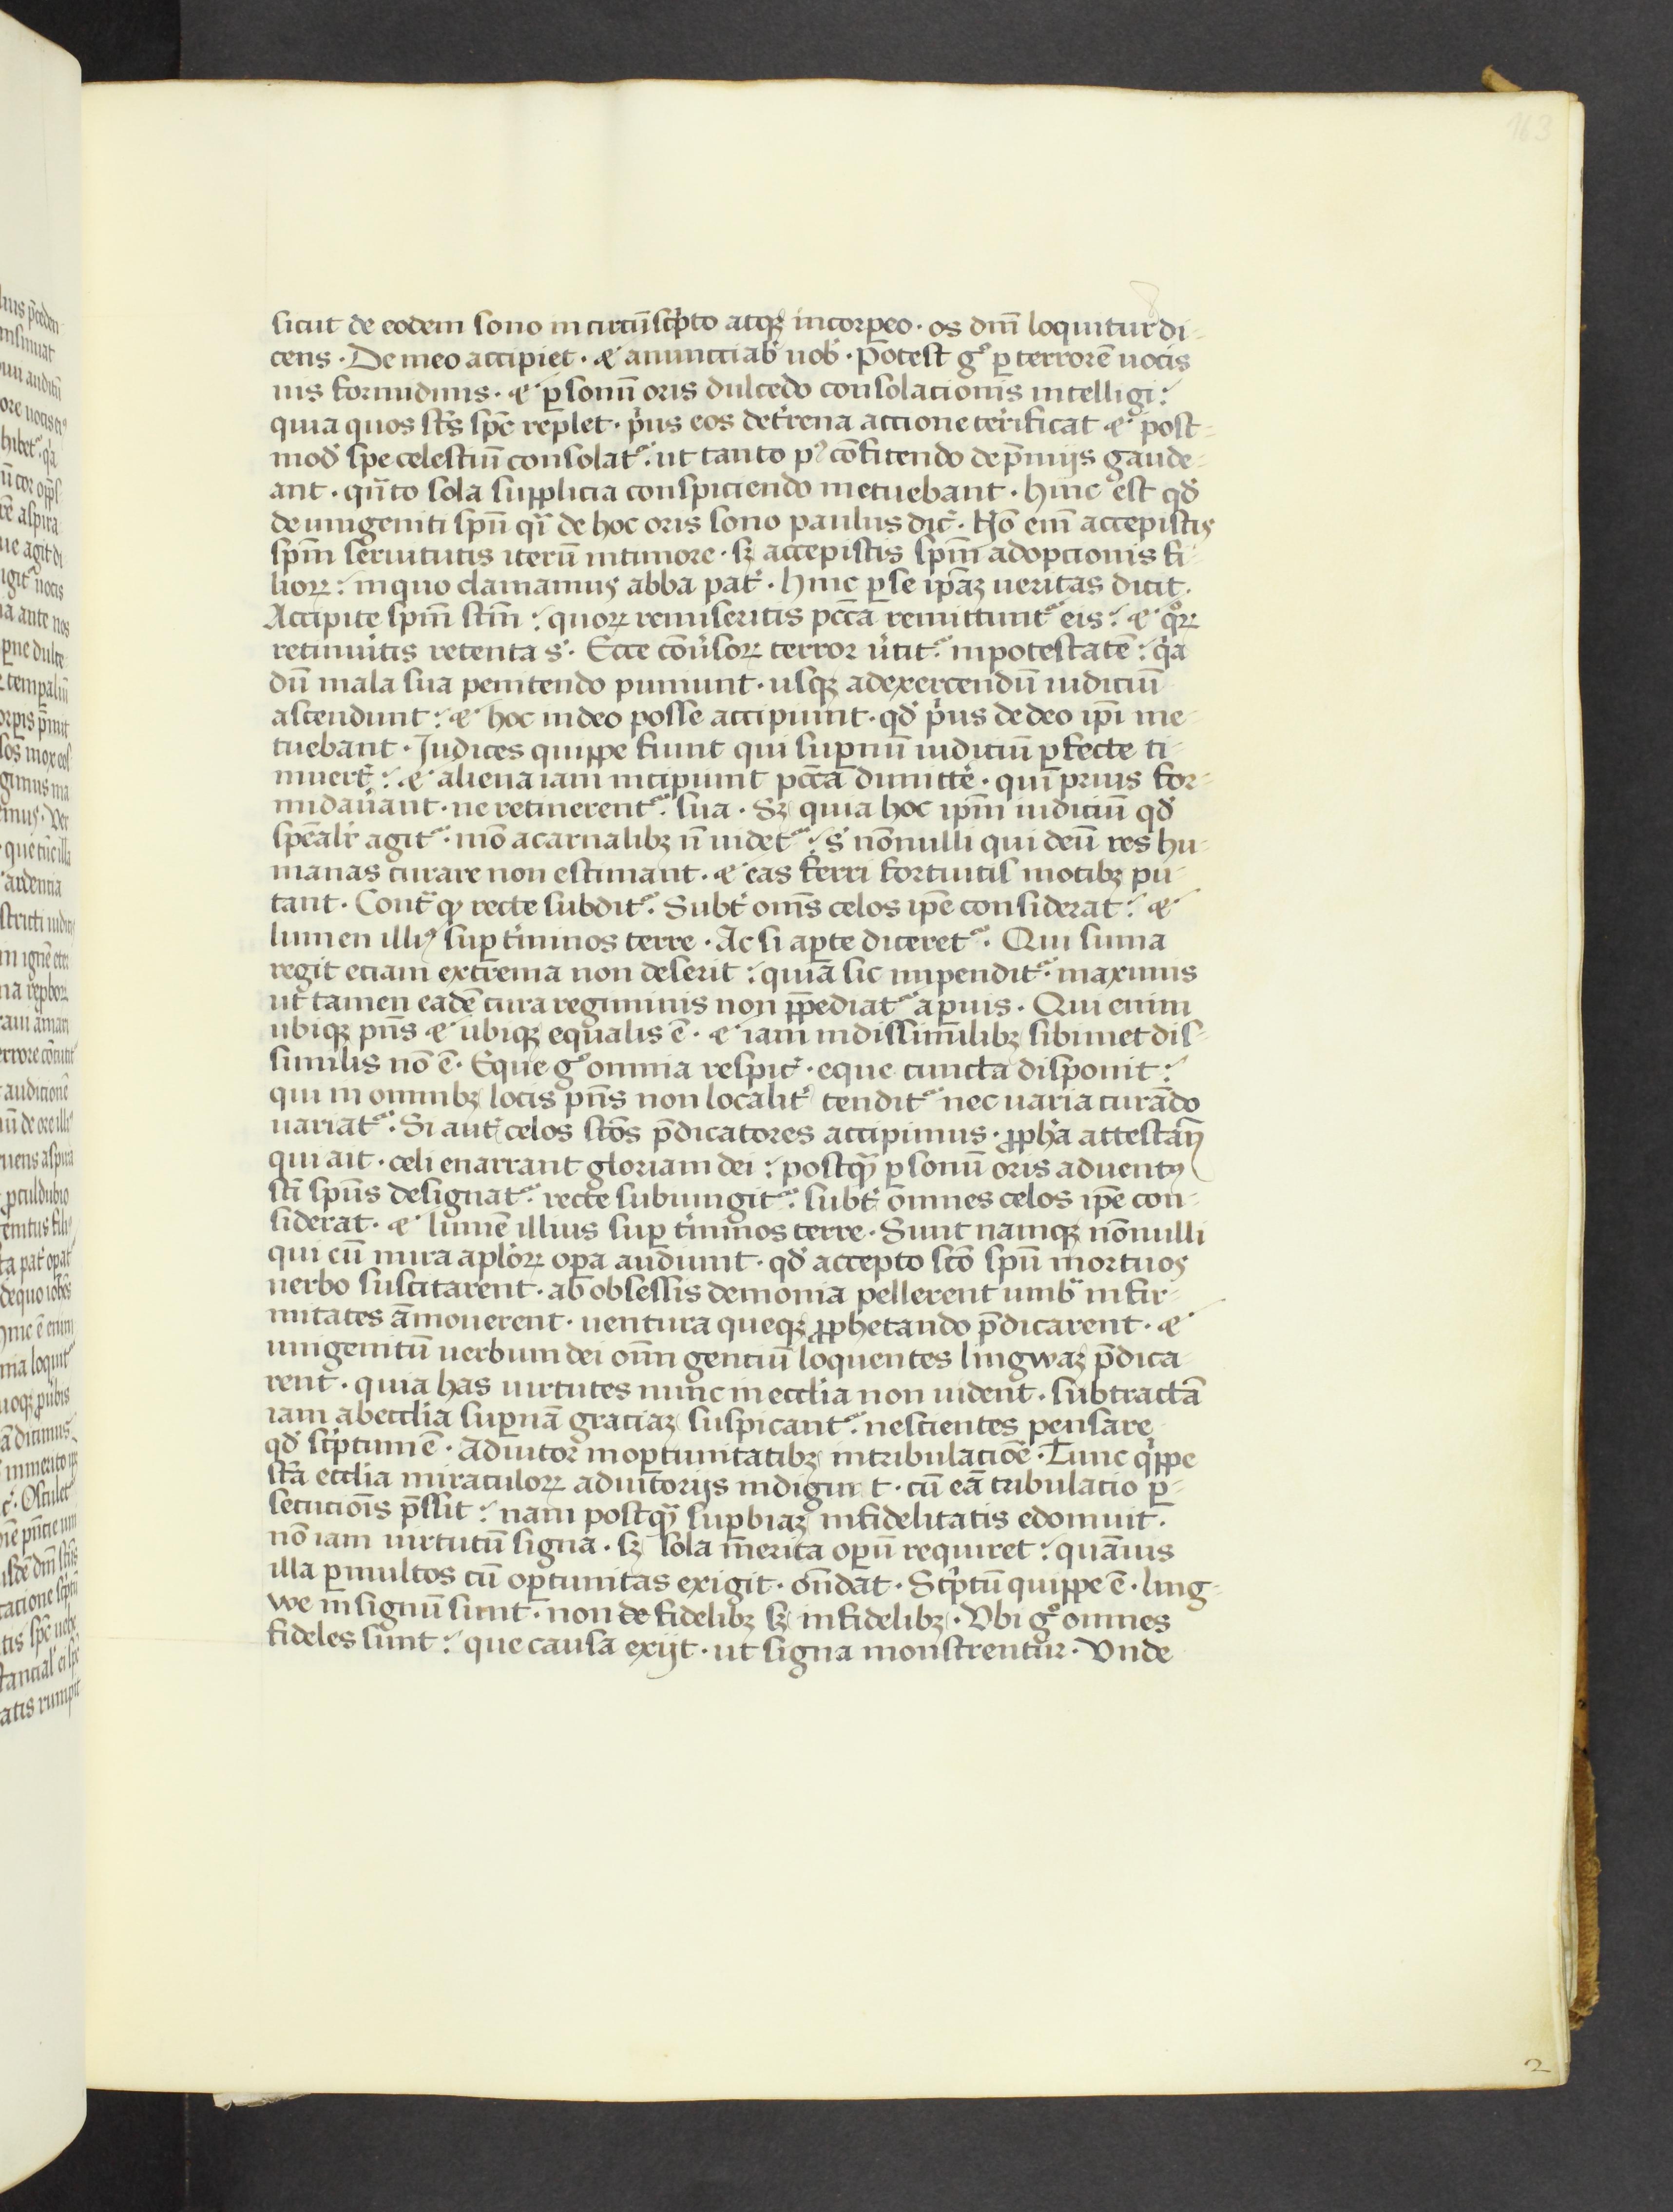 163
sicut de eodem sono in circūscͥpto atqꝫ incorꝑeo · os dnī loquitur di-
cens · De meo accipiet · ⁊ anuncciab̾ uob̾ · Potest gͦ ꝑ terrorē uocis
uis formidinis · ⁊ ꝑ sonū oris dulcedo consolacionis intelligi :
quia quos sc̄s spc̄ replet · pͥus eos det̾rena accione teͬrificat ⁊ post-
mod̾ spe celestiū consolat᷑ · ut tanto pꝰ cōfitendo de p̄mijs gaude-
ant · qͣnto sola supplicia conspiciendo metuebant · hinc est qd̾
de unigeniti spū qͣi de hoc oris sono paulus dic̾ · Nō eni᷑ accepistis
spm̄ seruitutis iterū in timore · sꝫ accepistis spm̄ adopcionis fi-
lioꝝ : in quo clamamus abba pat̾ · hinc ꝑ se ip̄aꝫ ueritas dicit ·
Accipite spm̄ scm̄ : quoꝝ remiseritis pcc̄a remittunt᷑ eis : ⁊ qͦꝝ
retinuͥtis retenta s̾ · Ecce cōuͥsoꝝ terror u̾tit᷑ in potestatē : qͥa
dū mala sua penitendo puniunt · usqꝫ ad exercendū iudiciū
ascendunt : ⁊ hoc in deo posse accipiunt · qd̾ pͥus de deo ip̄i me-
tuebant · Judices quippe fiunt qui suꝑnū iudiciū ꝑfecte ti-
muert̾ : ⁊ aliena iam incipiunt pcc̄a dimitte̾ · qui prius for-
midauant · ne retinerent᷑ sua · Sꝫ quia hoc ip̄m iudiciū qd̾
spēalr̾ agit᷑ · mō a carnalibꝫ n̄ uidet᷑ : s̾ nōnulli qui deū res hu-
manas curare non estimant · ⁊ eas ferri fortuitis motibꝫ pu-
tant · Contͣ qͦs recte subdit᷑ · Subt̾ om̄s celos ip̄e considerat : ⁊
lumen illiꝰ suꝑ t̾minos terre · Ac si aꝑte diceret᷑ · Qui suma
regit eciam extrema non deserit : quia sic impendit᷑ maximis
ut tamen eadē cura regiminis non p̄pediat᷑ a ꝑuis · Qui enim
ubiqꝫ pn̄s ⁊ ubiqꝫ equalis ē · ⁊ iam in dissimilibꝫ sibimet dis-
similis nō ē · Eque gͦ omnia respic̾ · eque cuncta disponit :
qui in omnibꝫ locis pn̄s non localit̾ tendit᷑ nec uaria curādo
uariat᷑ · Si aut̾ celos scōs p̄dicatores accipimus · ꝓph̾a attestān̄
qui ait · celi enarrant gloriam dei : postqͣ ꝑ sonū oris aduentꝰ
scī spūs designat᷑ · recte subiungit᷑ · subt̾ omnes celos ip̄e con-
siderat · ⁊ lumē illius suꝑ t̾minos terre · Sunt namqꝫ nōnulli
qui cū mira apl̾oꝝ oꝑa audiunt · qd̾ accepto scō spū mortuos
uerbo suscitarent · ab obsessis demonia pellerent umbͣ infir-
mitates āmouerent · uentura queqꝫ ꝓphetando p̄dicarent · ⁊
unigenitū uerbum dei om̄ genciū loquentes lingwaꝫ p̄dica
rent · quia has uirtutes nunc in eccl̾ia non uident · subtractā
iam ab eccl̾ia suꝑnā graciaꝫ suspicant᷑ nescientes pensare
qd̾ scͥptum ē · Adiutor in oꝑtunitatibꝫ in tribulaciōe · Tunc qͥppe
scā eccl̾ia miraculoꝝ adiutorijs indiguit · cū eā tribulacio ꝑ-
secucōis p̄ssit : nam postqͣ suꝑbiaꝫ infidelitatis edomuit ·
nō iam uirtutū signa · sꝫ sola m̄erita oꝑū requiret : quāuis
illa ꝑ multos cū oꝑtunitas exigit · on̄dat · Scͥptū quippe ē · ling-
we in signū sunt · non de fidelibꝫ sꝫ infidelibꝫ · Vbi gͦ omnes
fideles sunt : que causa exijt · ut signa monstrentur · Vnde
2